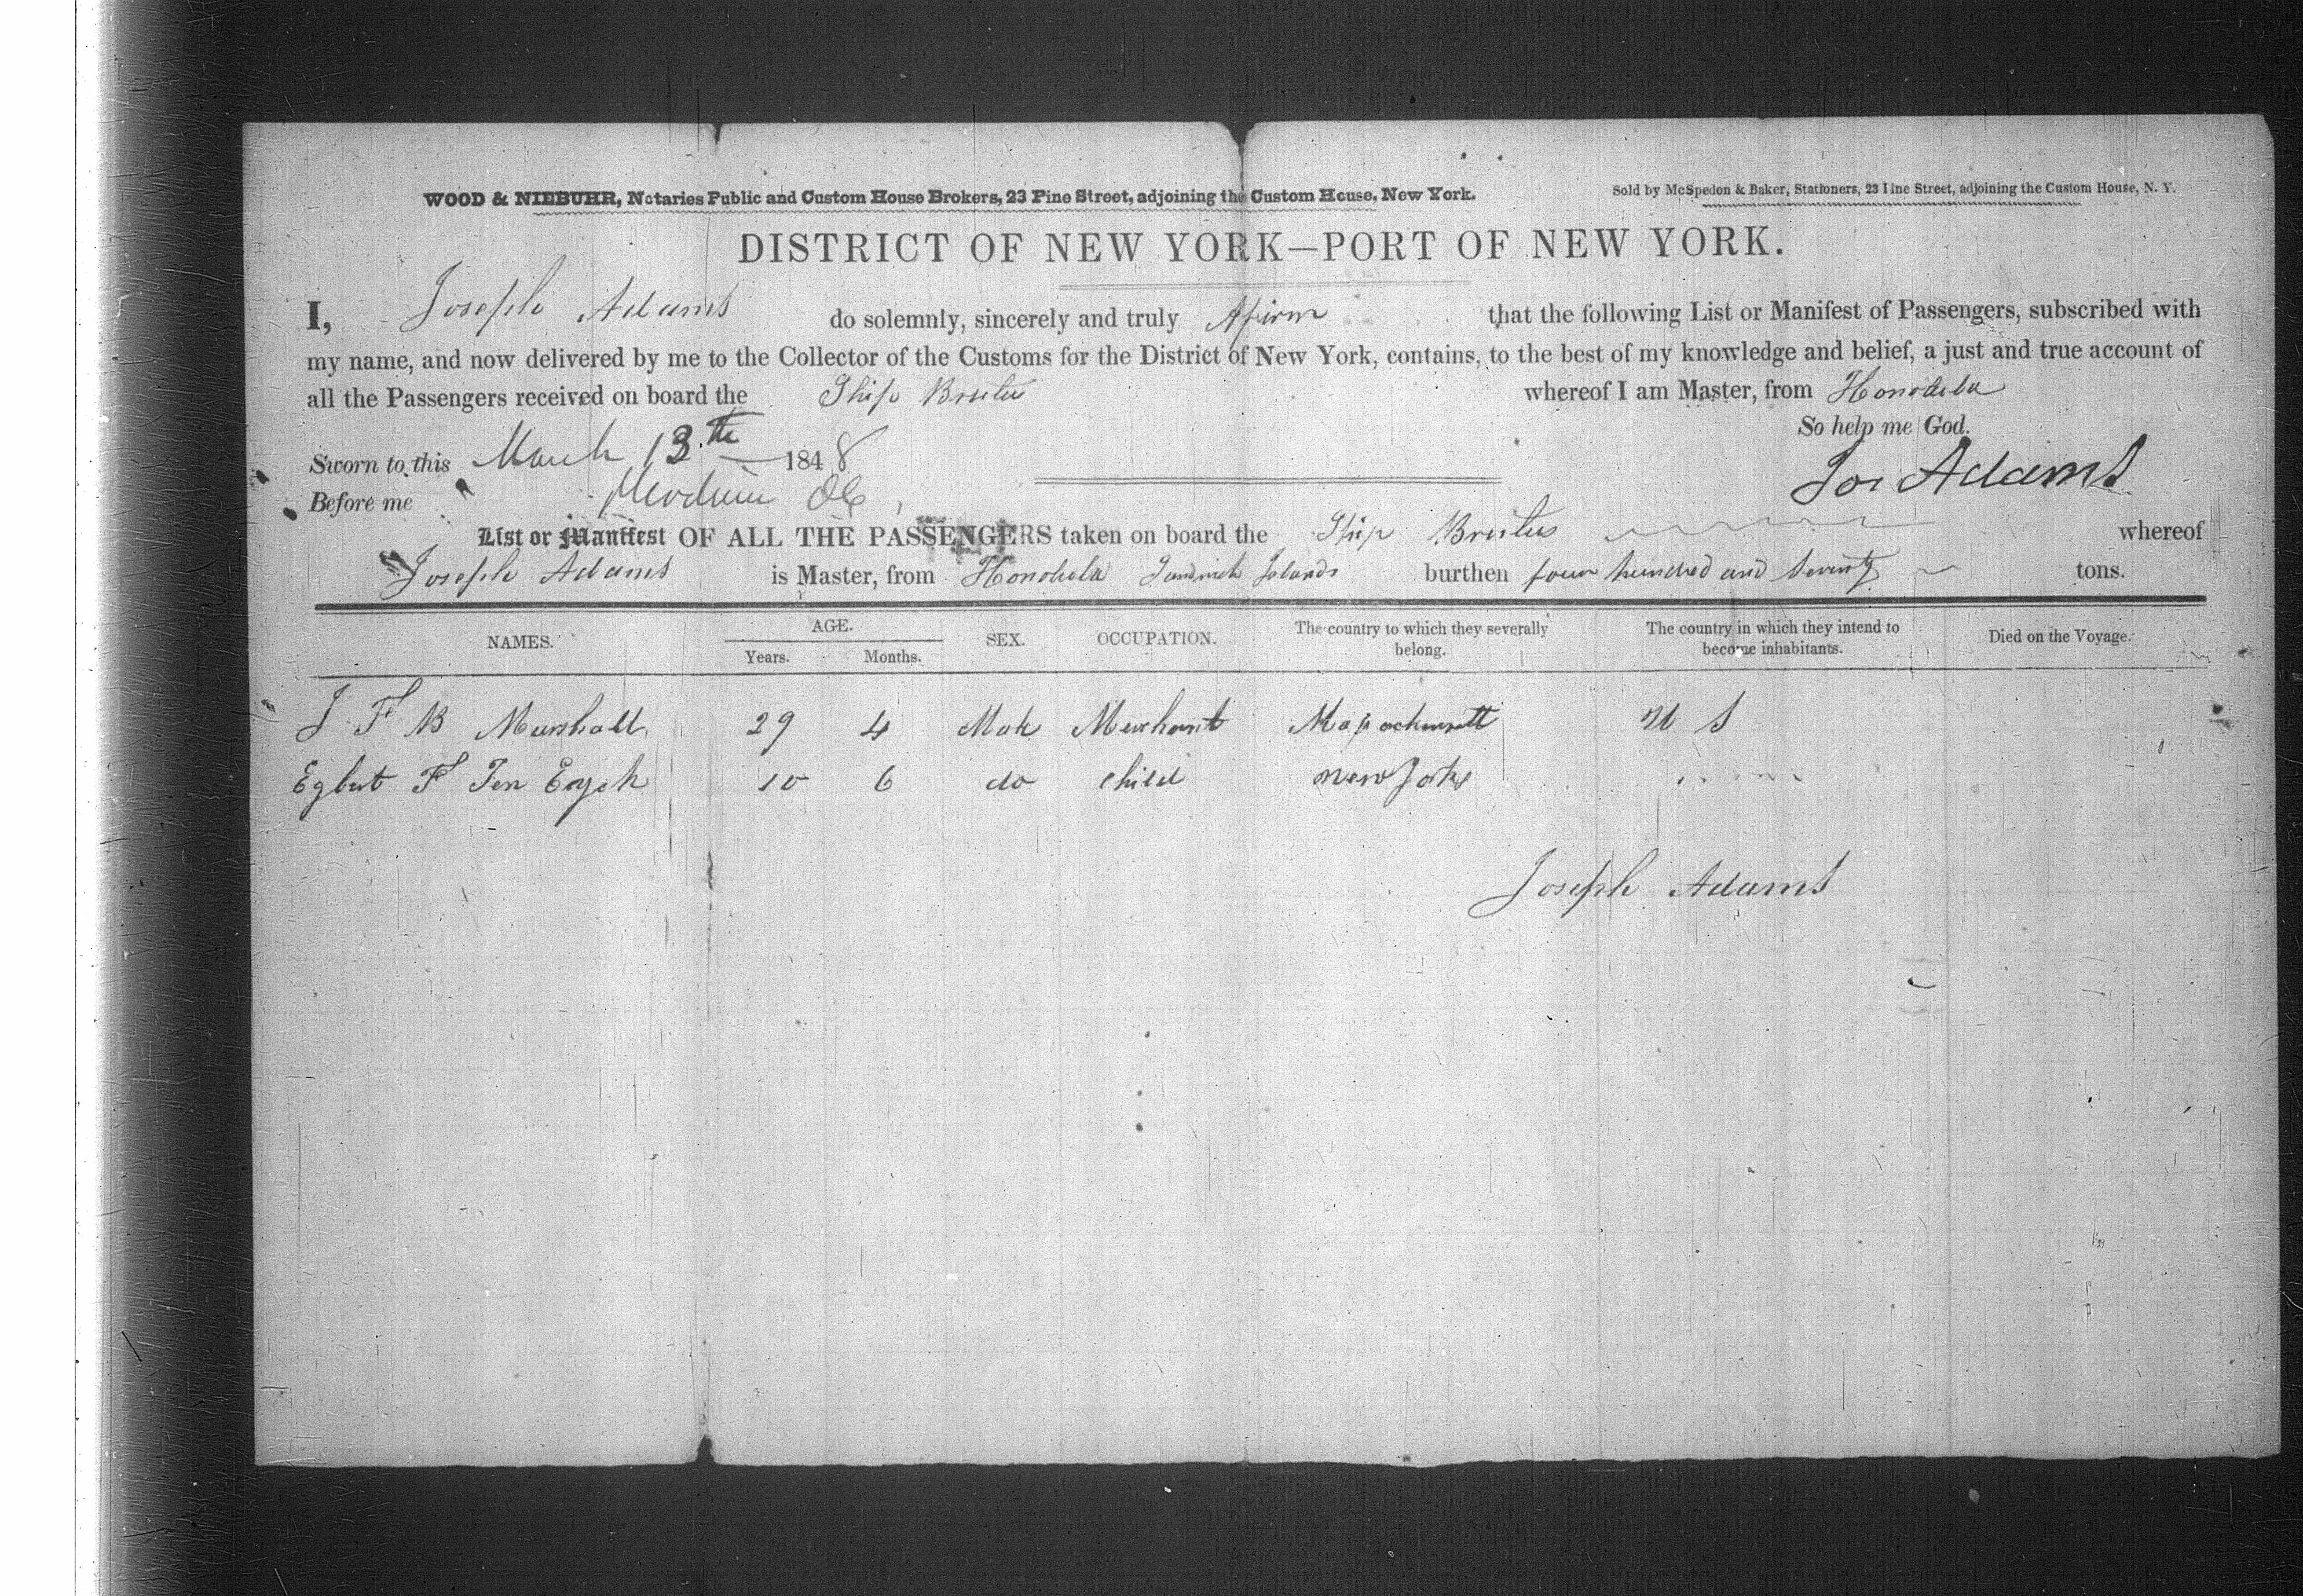 WOOD & NIEBUHR, Notaries Public and Custom House Brokers, 23 Pine Street, adjoining the Custom House, New York.
Sold by McSpedon & Baker, Stationers, 23 Pine Street, adjoining the Custom House, N. Y.
DISTRICT OF NEW YORK—PORT OF NEW YORK.
I, Joseph Adams do solemnly, sincerely and truly Afirm that the following List or Manifest of Passengers, subscribed with
my name, and now delivered by me to the Collector of the Customs for the District of New York, contains, to the best of my knowledge and belief, a just and true account of
all the Passengers received on board the Ship Brutus whereof I am Master, from Honolula
So help me God.
Sworn to this March 13th 1848
Jos Adams
Before me
List or Manifest OF ALL THE PASSENGERS taken on board the Ship Brutus whereof
Joseph Adams is Master, from Honolula Sandwich Islands burthen four hundred and seventy tons.
NAMES. AGE. SEX. OCCUPATION. The country to which they severally belong. The country in which they intend to become inhabitants. Died on the Voyage.
Years. Months.
J F B Marshall 29 4 Male Merchant Massachusett U S
Egbert F Ten Eyck 10 6 do child New York " "
Joseph Adams